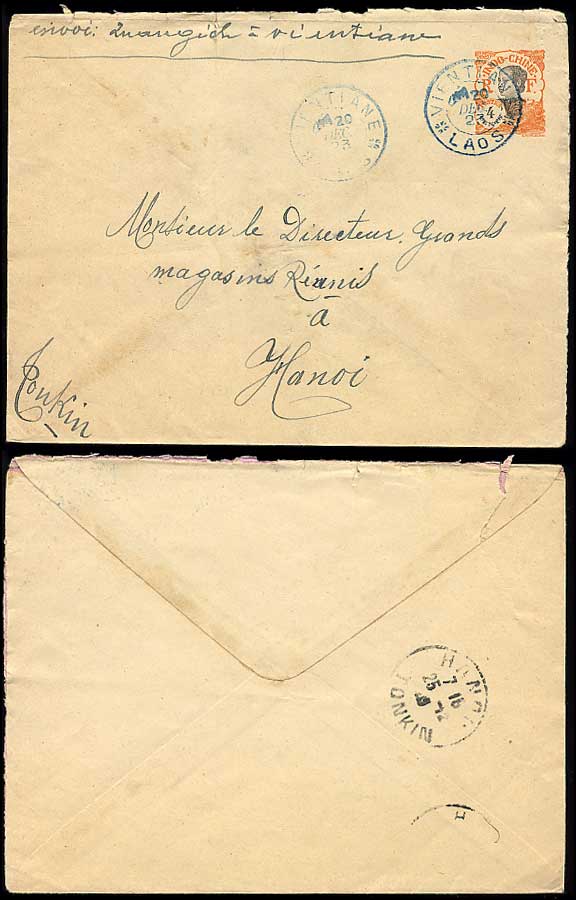 envoi: Quangich = vientiane
INDO-CHINE
R F
VIENTIANE
20
DEC
23
LAOS
VIENTIANE
20
DEC
23
Monsieur le Directeur, Grands
magasins Réunis
à
Hanoi
Tonkin
HANOI
7 15
25 -12
TONKIN
H